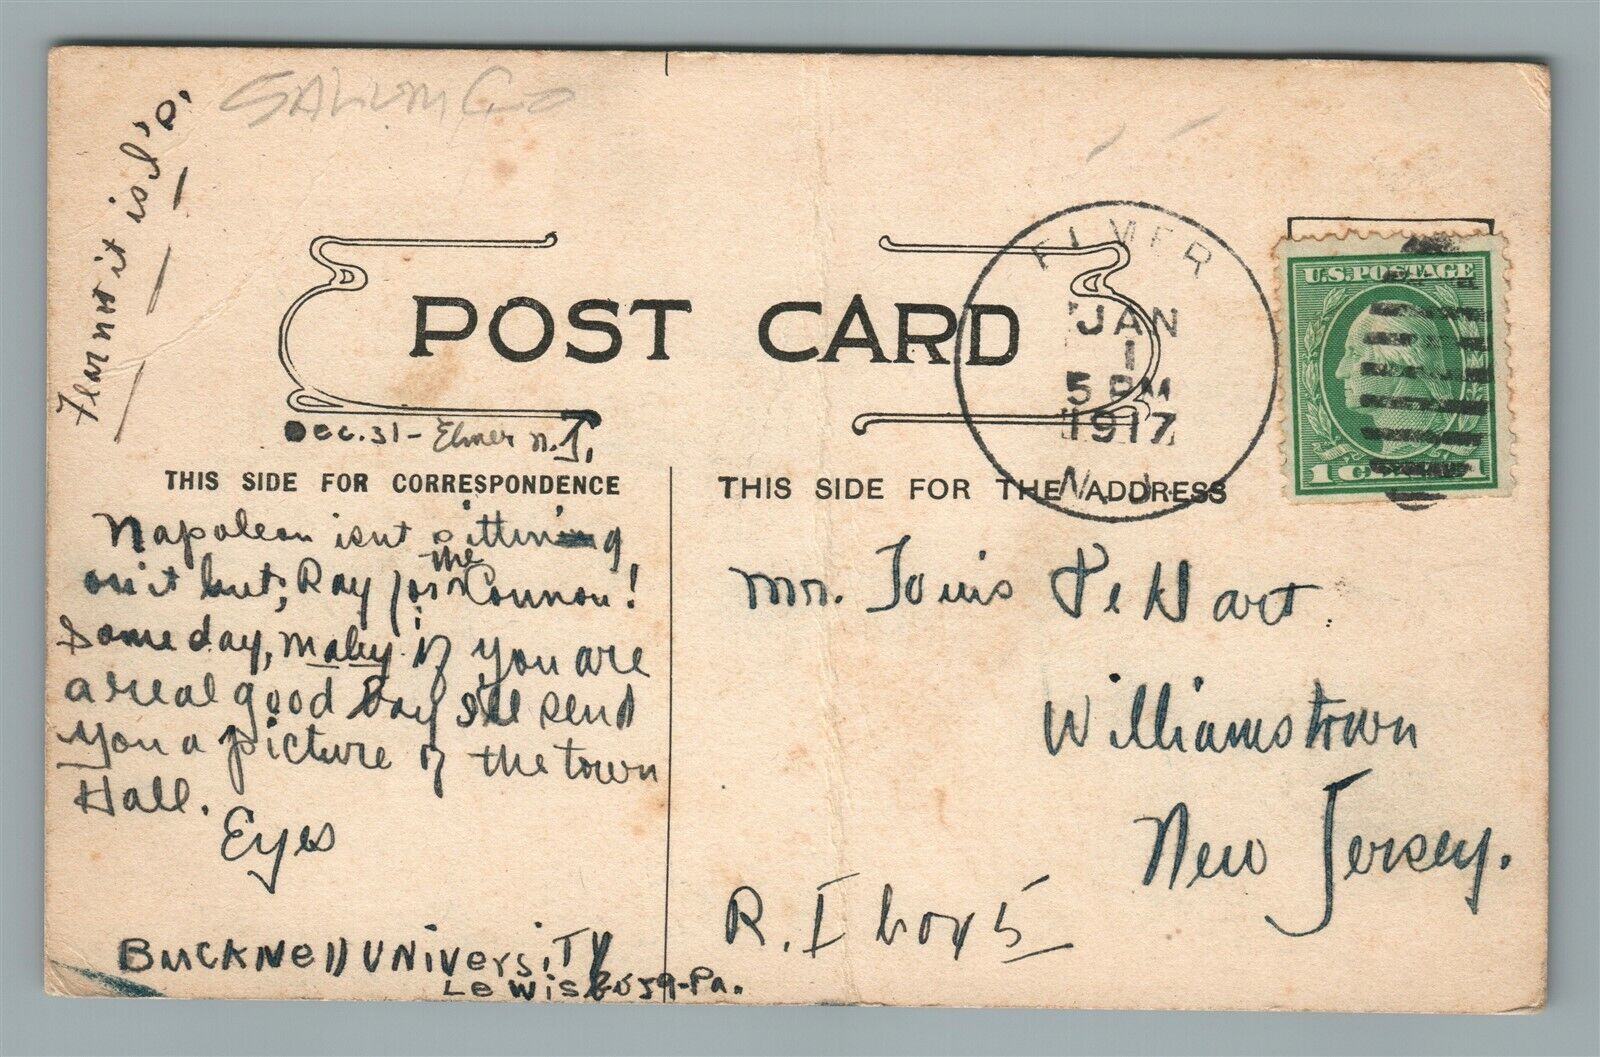 Fear not it is I
POST CARD
ELMER
JAN
1
5 PM
1917
N.J.
U.S. POSTAGE
1 CENT 1
Dec. 31 - Elmer N.J.
THIS SIDE FOR CORRESPONDENCE
THIS SIDE FOR THE ADDRESS
Napoleon isnt sitting
on it but, Ray for the Connon!
Some day, maby if you are
a real good boy I'll send
you a picture of the town
Hall.
Eyes
Bucknell University
Lewisburg-Pa.
Mr. Louis DeHart.
Williamstown
New Jersey.
R. I box 5